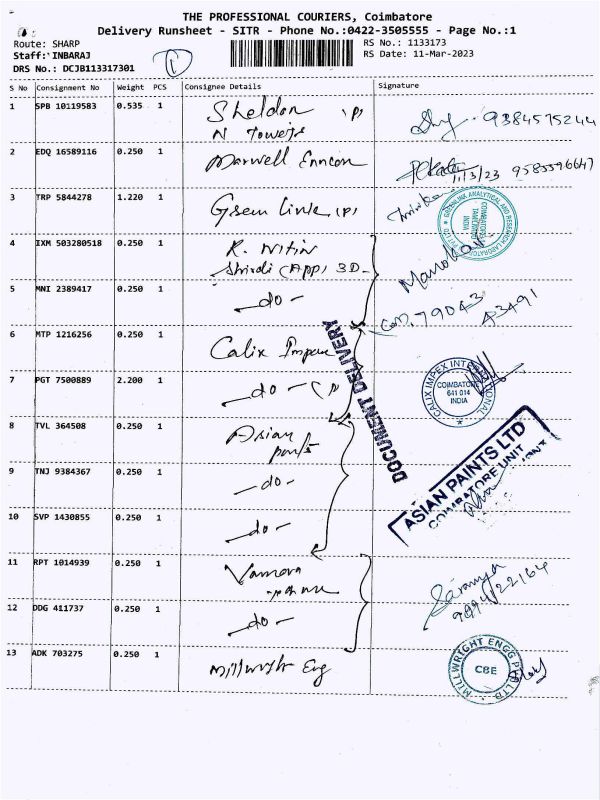 THE PROFESSIONAL COURIERS, Coimbatore
Delivery Runsheet - SITR - Phone No.:0422-3505555 - Page No.:1
Route: SHARP
RS No.: 1133173
Staff: INBARAJ
RS Date: 11-Mar-2023
DRS No.: DCJB113317301
1
S No Consignment No Weight PCS Consignee Details Signature
1 SPB 10119583 0.535 1 Sheldon (P) 9384575244
N Towers
2 EDQ 16589116 0.250 1 Maxwell 11/3/23 9585596647
3 TRP 5844278 1.220 1 Green Link (P)
GREENLINK ANALYTICAL AND RESEARCH LABORATORY COIMBATORE TAMILNADU INDIA
4 IXM 503280518 0.250 1 R. Nitin Manokar
Shirdi (App) 3D
5 MNI 2389417 0.250 1 -do- 79043 43491
DOCUMENT DELIVERY
6 MTP 1216256 0.250 1 Calix Impex
CALIX IMPEX INTERNATIONAL COIMBATORE 641 014 INDIA
7 PGT 7500889 2.200 1 -do- (P)
8 TVL 364508 0.250 1 Asian paints
ASIAN PAINTS LTD
COIMBATORE UNIT
9 TNJ 9384367 0.250 1 -do-
10 SVP 1430855 0.250 1 -do-
11 RPT 1014939 0.250 1 Saranya
9994122164
12 DDG 411737 0.250 1 -do-
13 ADK 703275 0.250 1 Millwright Eng
MILLWRIGHT ENGG PVT LTD CBE